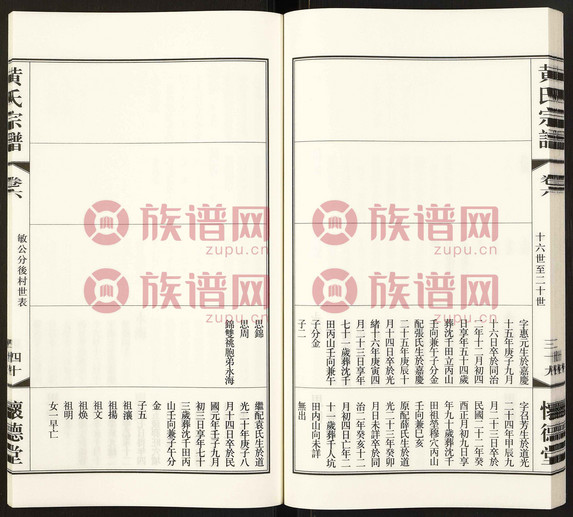 黃氏宗譜
卷六
十六世至二十世
懷德堂
字惠元生於嘉慶
十五年庚子九月
十六日卒於同治
二年十二月初四
日享年五十四歲
葬沈千田立丙山
壬向兼午子分金
配張氏生於嘉慶
二十五年庚辰十
月十四日卒於光
緒十六年庚寅四
月二十三日享年
七十一歲葬沈千
田丙山壬向兼午
子分金
子二
字召芳生於道光
二十四年甲辰九
月二十三日卒於
民國二十二年癸
酉正月初九日享
年九十歲葬沈千
田祖塋穆穴丙山
壬向兼巳亥
原配薛氏生於道
光二十三年癸卯
月日未詳卒於同
治二年癸亥十二
月初四日亡年二
十一歲葬千人坑
田內山向未詳
無出
黃氏宗譜
卷六
敏公分後村世表
四十
懷德堂
思錦
思周
錦雙祧胞弟永海
繼配袁氏生於道
光二十年庚子八
月十四日卒於民
國元年壬子九月
初三日享年七十
三歲葬沈千田丙
山壬向兼子午分
金
子五
祖瀼
祖揚
祖文
祖煥
祖明
女一早亡
族谱网
zupu.cn
族谱网
zupu.cn
族谱网
zupu.cn
族谱网
zupu.cn